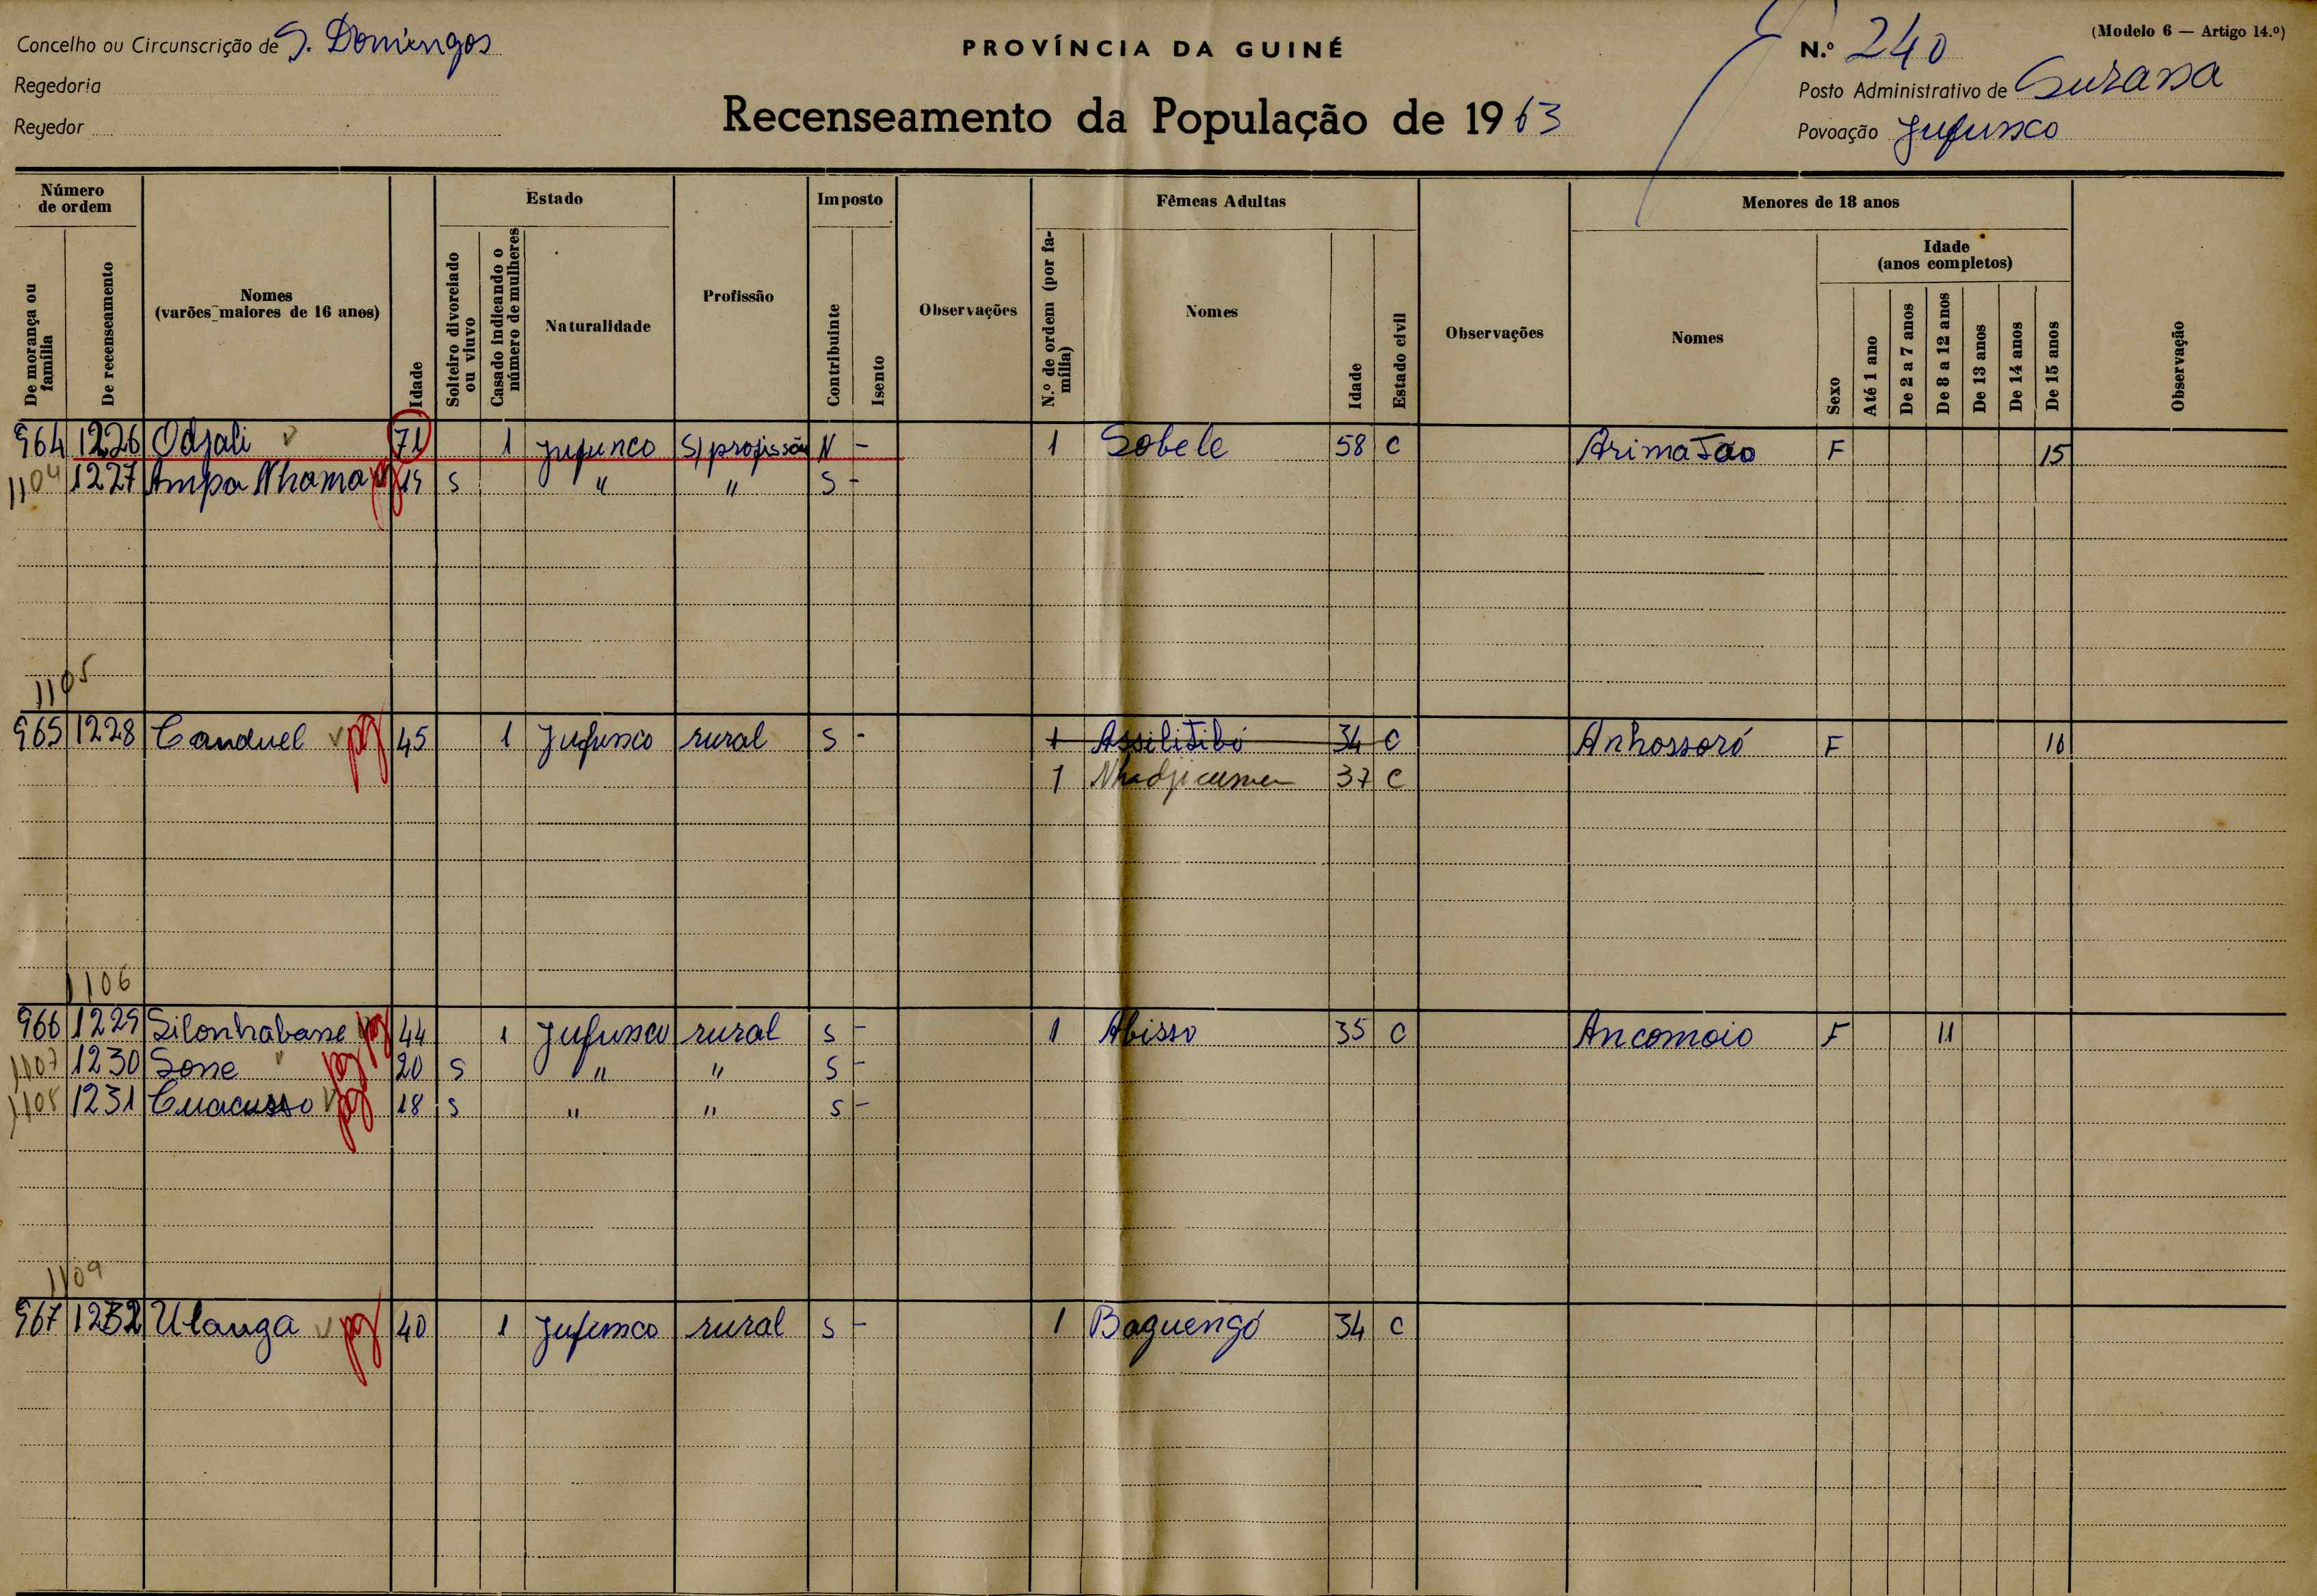 Concelho ou Circunscrição de S. Domingos
Regedoria
Regedor
PROVÍNCIA DA GUINÉ
Recenseamento da População de 1963
(Modelo 6 — Artigo 14.º)
N.º 240
Posto Administrativo de Suzana
Povoação Jufunco
Número de ordem
De morança ou família
De recenseamento
Nomes (varões maiores de 16 anos)
Idade
Estado
Solteiro divorciado ou viuvo
Casado indicando o número de mulheres
Naturalidade
Profissão
Imposto
Contribuinte
Isento
Observações
Fêmeas Adultas
N.º de ordem (por família)
Nomes
Idade
Estado civil
Observações
Menores de 18 anos
Nomes
Sexo
Idade (anos completos)
Até 1 ano
De 2 a 7 anos
De 8 a 12 anos
De 13 anos
De 14 anos
De 15 anos
Observação
964 1226 Odjali 71 1 Jufunco S/ profissão N - 1 Sobele 58 C Arima Jao F 15
1104 1227 Ampa Nhama pg 19 S " " S -
1105
965 1228 Canduel pg 45 1 Jufunco rural S - 1 Assilitibó 34 C Anhossoró F 16
1 Nhadjicumen 37 C
1106
966 1229 Silonhabane pg 44 1 Jufunco rural S - 1 Abisso 35 C Ancomoio F 11
1107 1230 Sone pg 20 S " " S -
1108 1231 Cuacusso pg 18 S " " S -
1109
967 1232 Ulanga pg 40 1 Jufunco rural S - 1 Baguengó 34 C